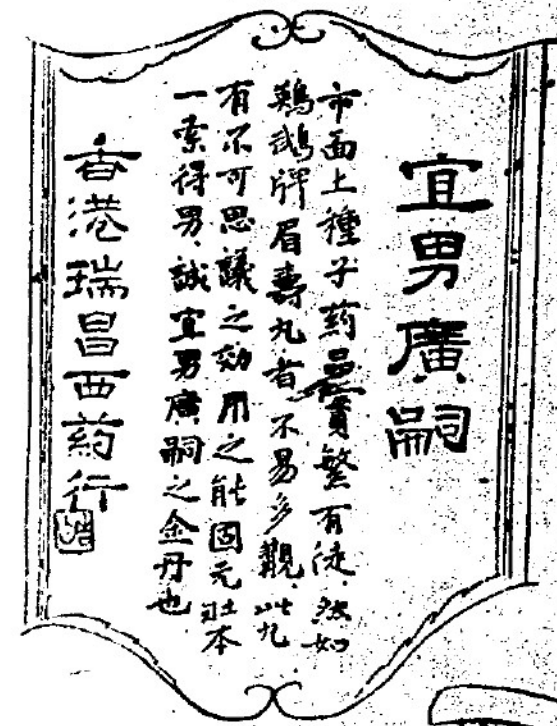 宜男廣嗣
市面上種子葯實繁有徒、然如
牌眉壽丸者、不易多觀、此丸
有不可思議之効用之能固元壯本
一索得男、誠宜男廣嗣之金丹也
香港瑞昌西葯行